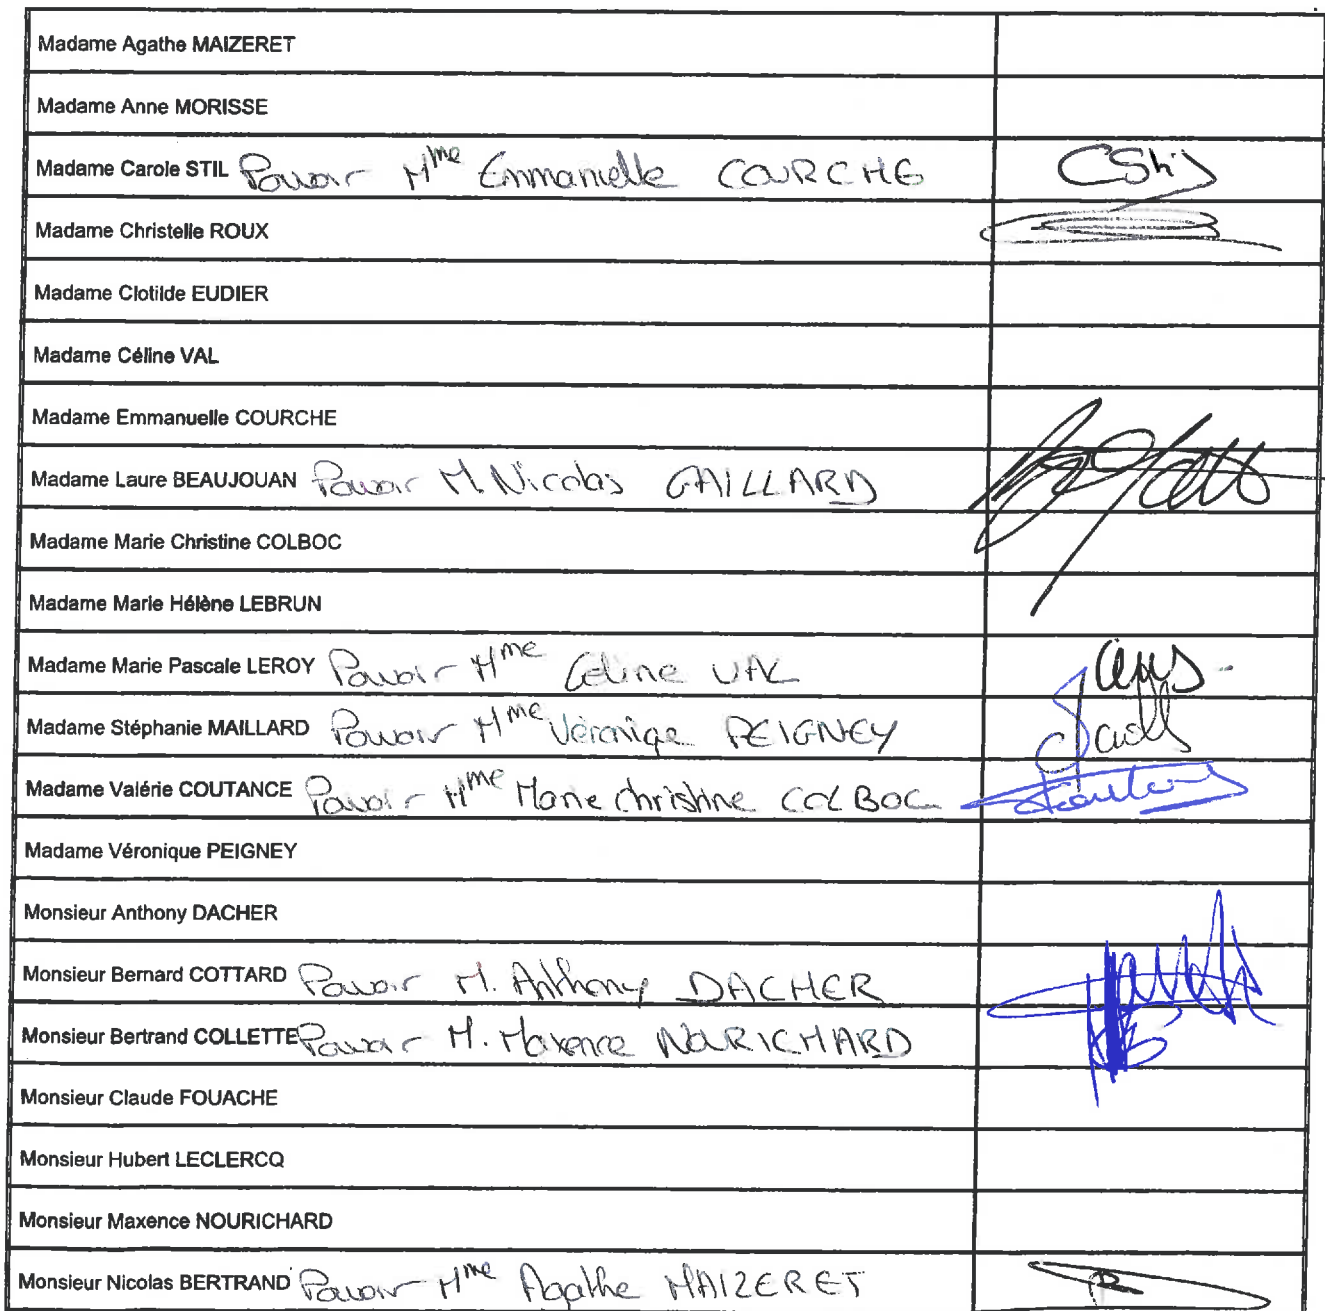 Madame Agathe MAIZERET
Madame Anne MORISSE
Madame Carole STIL Pouvoir Mme Emmanuelle COURCHE
Madame Christelle ROUX
Madame Clotilde EUDIER
Madame Céline VAL
Madame Emmanuelle COURCHE
Madame Laure BEAUJOUAN Pouvoir M. Nicolas GAILLARD
Madame Marie Christine COLBOC
Madame Marie Hélène LEBRUN
Madame Marie Pascale LEROY Pouvoir Mme Céline VAL
Madame Stéphanie MAILLARD Pouvoir Mme Véroniqe PEIGNEY
Madame Valérie COUTANCE Pouvoir Mme Marie christine COLBOC
Madame Véronique PEIGNEY
Monsieur Anthony DACHER
Monsieur Bernard COTTARD Pouvoir M. Anthony DACHER
Monsieur Bertrand COLLETTE Pouvoir M. Maxence NOURICHARD
Monsieur Claude FOUACHE
Monsieur Hubert LECLERCQ
Monsieur Maxence NOURICHARD
Monsieur Nicolas BERTRAND Pouvoir Mme Agathe MAIZERET